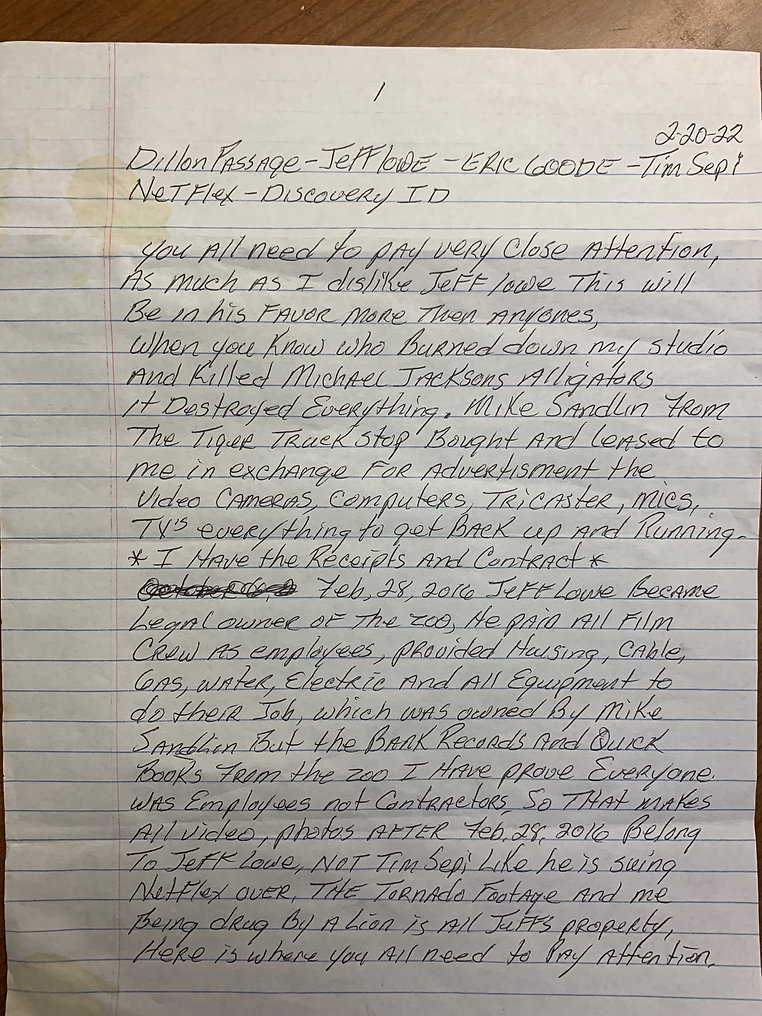 1
2-20-22
Dillon Passage - Jeff lowe - Eric Goode - Tim Sepi
Netflex - Discovery ID
you All need to pay very close Attention,
As much As I dislike Jeff lowe This will
Be in his Favor more Then Anyones,
when you know who Burned down my studio
And Killed Michael Jacksons Alligators
it Destroyed Everything. Mike Sandlin From
The Tiger Truck Stop Bought And leased to
me in exchange For Advertisment the
Video Cameras, Computers, Tricaster, mics,
TV's everything to get Back up and Running-
* I Have the Receipts And Contract *
Feb, 28, 2016 Jeff Lowe Became
Legal owner of The zoo, He paid All Film
Crew As employees, provided Housing, Cable,
Gas, water, Electric And All Equipment to
do their Job, which was owned By Mike
Sandlin But the Bank Records And Quick
Books From the zoo I Have prove Everyone
was Employees not Contractors, So That makes
All video, photos After Feb, 28, 2016 Belong
To Jeff Lowe, Not Tim Sepi Like he is suing
Netflex over, The Tornado Footage And me
Being drug By A Lion is All Jeffs property,
Here is where you All need to Pay Attention.